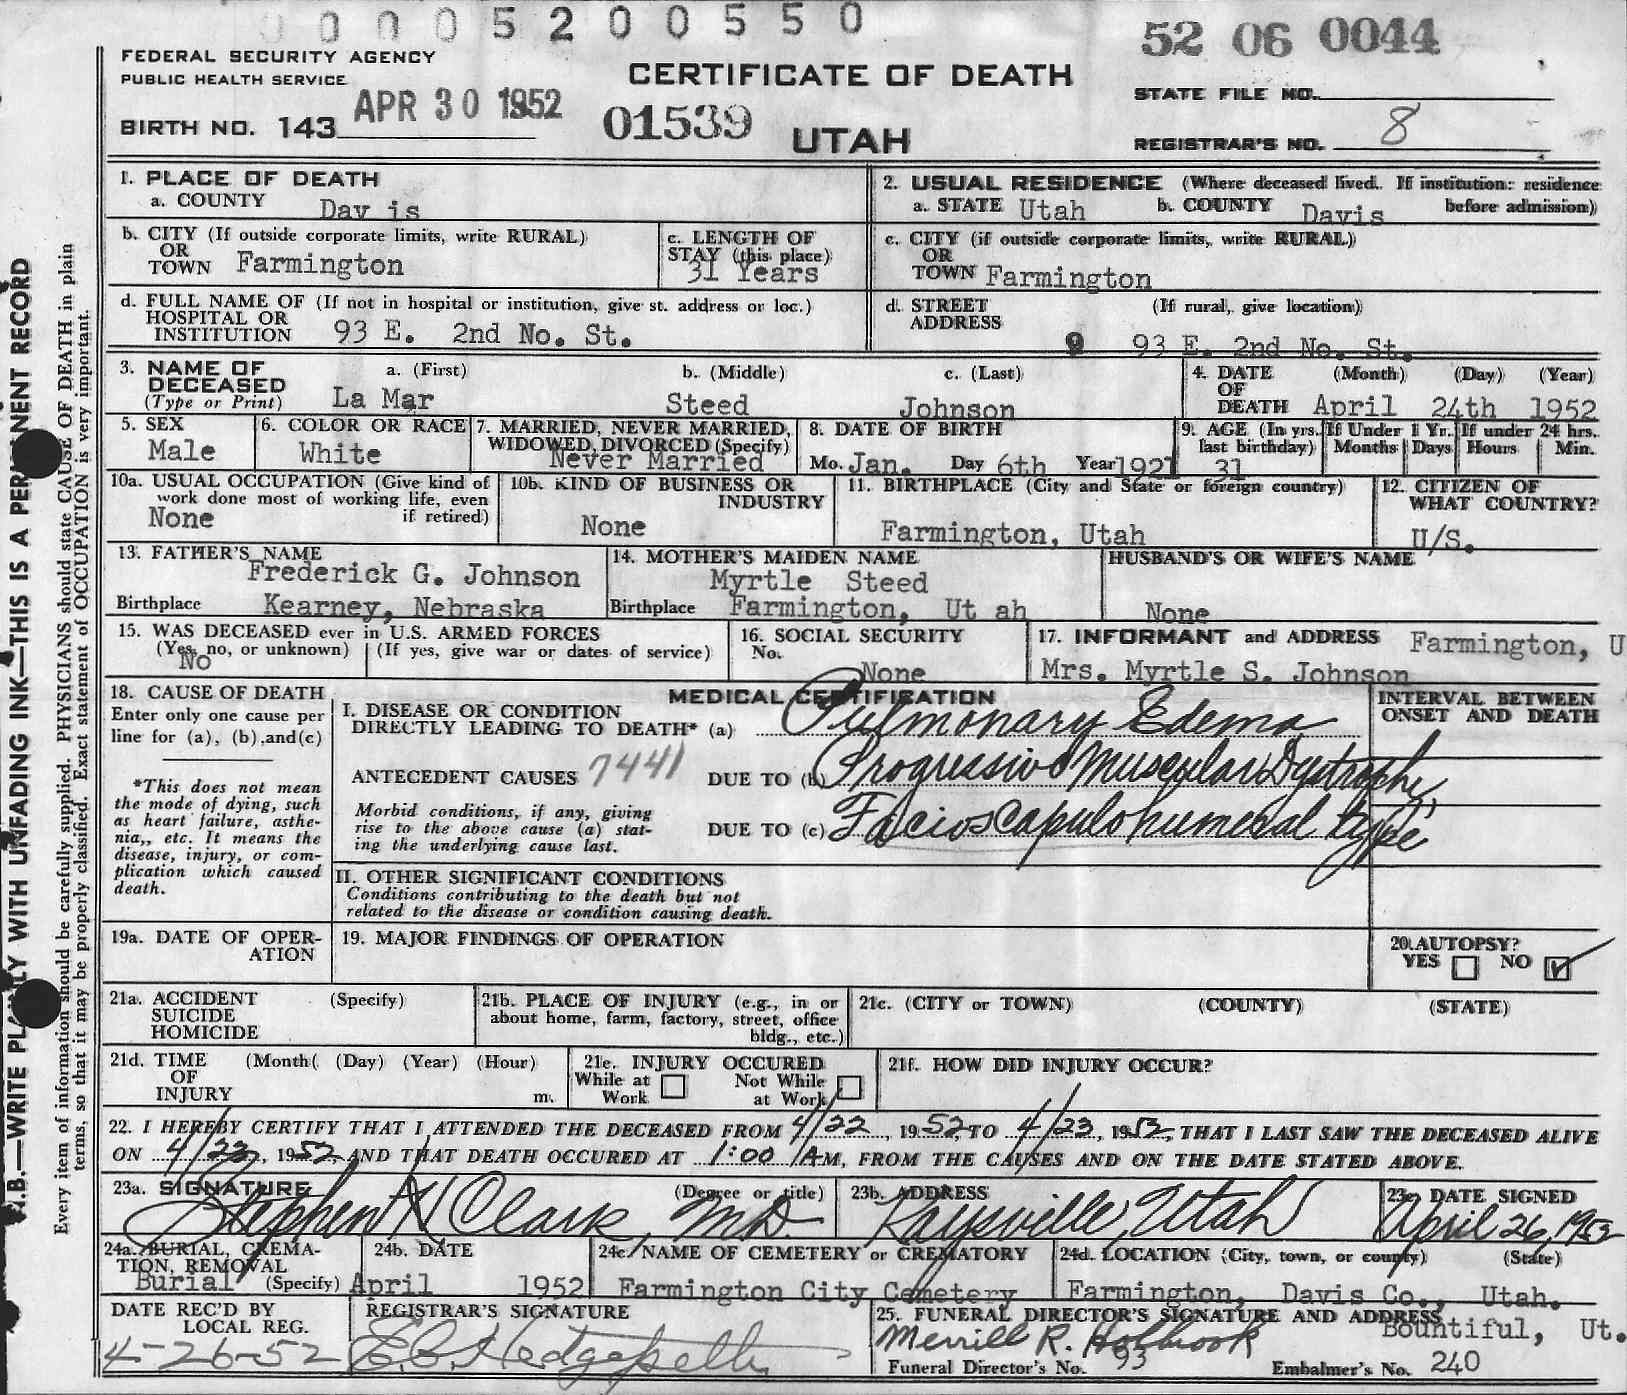 0 0 0 0 5 2 0 0 5 5 0
52 06 0044
FEDERAL SECURITY AGENCY
PUBLIC HEALTH SERVICE
CERTIFICATE OF DEATH
STATE FILE NO.
APR 30 1952
BIRTH NO. 143
01539
UTAH
REGISTRAR'S NO. 8
N.B.—WRITE PLAINLY WITH UNFADING INK—THIS IS A PERMANENT RECORD
Every item of information should be carefully supplied. PHYSICIANS should state CAUSE OF DEATH in plain
terms, so that it may be properly classified. Exact statement of OCCUPATION is very important.
1. PLACE OF DEATH
a. COUNTY Dav is
2. USUAL RESIDENCE (Where deceased lived. If institution: residence
a. STATE Utah b. COUNTY Davis before admission)
b. CITY (If outside corporate limits, write RURAL)
OR
TOWN Farmington
c. LENGTH OF
STAY (this place)
31 Years
c. CITY (if outside corporate limits, write RURAL)
OR
TOWN Farmington
d. FULL NAME OF (If not in hospital or institution, give st. address or loc.)
HOSPITAL OR
INSTITUTION 93 E. 2nd No. St.
d. STREET (If rural, give location)
ADDRESS
9 93 E. 2nd No. St.
3. NAME OF a. (First) b. (Middle) c. (Last)
DECEASED
(Type or Print) La Mar Steed Johnson
4. DATE (Month) (Day) (Year)
OF
DEATH April 24th 1952
5. SEX
Male
6. COLOR OR RACE
White
7. MARRIED, NEVER MARRIED,
WIDOWED, DIVORCED (Specify)
Never Married
8. DATE OF BIRTH
Mo. Jan. Day 6th Year 1921
9. AGE (In yrs. If Under 1 Yr. If under 24 hrs.
last birthday) Months Days Hours Min.
31
10a. USUAL OCCUPATION (Give kind of
work done most of working life, even
if retired)
None
10b. KIND OF BUSINESS OR
INDUSTRY
None
11. BIRTHPLACE (City and State or foreign country)
Farmington, Utah
12. CITIZEN OF
WHAT COUNTRY?
U/S.
13. FATHER'S NAME
Frederick G. Johnson
Birthplace Kearney, Nebraska
14. MOTHER'S MAIDEN NAME
Myrtle Steed
Birthplace Farmington, Ut ah
HUSBAND'S OR WIFE'S NAME
None
15. WAS DECEASED ever in U.S. ARMED FORCES
(Yes, no, or unknown) (If yes, give war or dates of service)
No
16. SOCIAL SECURITY
No.
None
17. INFORMANT and ADDRESS Farmington, U
Mrs. Myrtle S. Johnson
18. CAUSE OF DEATH
Enter only one cause per
line for (a), (b),and(c)
*This does not mean
the mode of dying, such
as heart failure, asthe-
nia,, etc. It means the
disease, injury, or com-
plication which caused
death.
MEDICAL CERTIFICATION
INTERVAL BETWEEN
ONSET AND DEATH
I. DISEASE OR CONDITION
DIRECTLY LEADING TO DEATH* (a) Pulmonary Edema
ANTECEDENT CAUSES 7441 DUE TO (b) Progressive Muscular Dystrophy
Morbid conditions, if any, giving
rise to the above cause (a) stat-
ing the underlying cause last.
DUE TO (c) Facioscapulohumeral type
II. OTHER SIGNIFICANT CONDITIONS
Conditions contributing to the death but not
related to the disease or condition causing death.
19a. DATE OF OPER-
ATION
19. MAJOR FINDINGS OF OPERATION
20. AUTOPSY?
YES NO
21a. ACCIDENT (Specify)
SUICIDE
HOMICIDE
21b. PLACE OF INJURY (e.g., in or
about home, farm, factory, street, office
bldg., etc.)
21c. (CITY or TOWN) (COUNTY) (STATE)
21d. TIME (Month( (Day) (Year) (Hour)
OF
INJURY m.
21e. INJURY OCCURED
While at Not While
Work at Work
21f. HOW DID INJURY OCCUR?
22. I HEREBY CERTIFY THAT I ATTENDED THE DECEASED FROM 4/22, 1952, TO 4/23, 1952, THAT I LAST SAW THE DECEASED ALIVE
ON 4/23, 1952, AND THAT DEATH OCCURED AT 1:00 AM, FROM THE CAUSES AND ON THE DATE STATED ABOVE.
23a. SIGNATURE (Degree or title)
Stephen H Clark, M.D.
23b. ADDRESS
Kaysville, Utah
23c. DATE SIGNED
April 26, 1952
24a. BURIAL, CREMA-
TION, REMOVAL
Burial (Specify)
24b. DATE
April 1952
24c. NAME OF CEMETERY or CREMATORY
Farmington City Cemetery
24d. LOCATION (City, town, or county) (State)
Farmington, Davis Co., Utah.
DATE REC'D BY
LOCAL REG.
4-26-52
REGISTRAR'S SIGNATURE
25. FUNERAL DIRECTOR'S SIGNATURE AND ADDRESS
Merrill R. Holbrook Bountiful, Ut.
Funeral Director's No. 93 Embalmer's No. 240